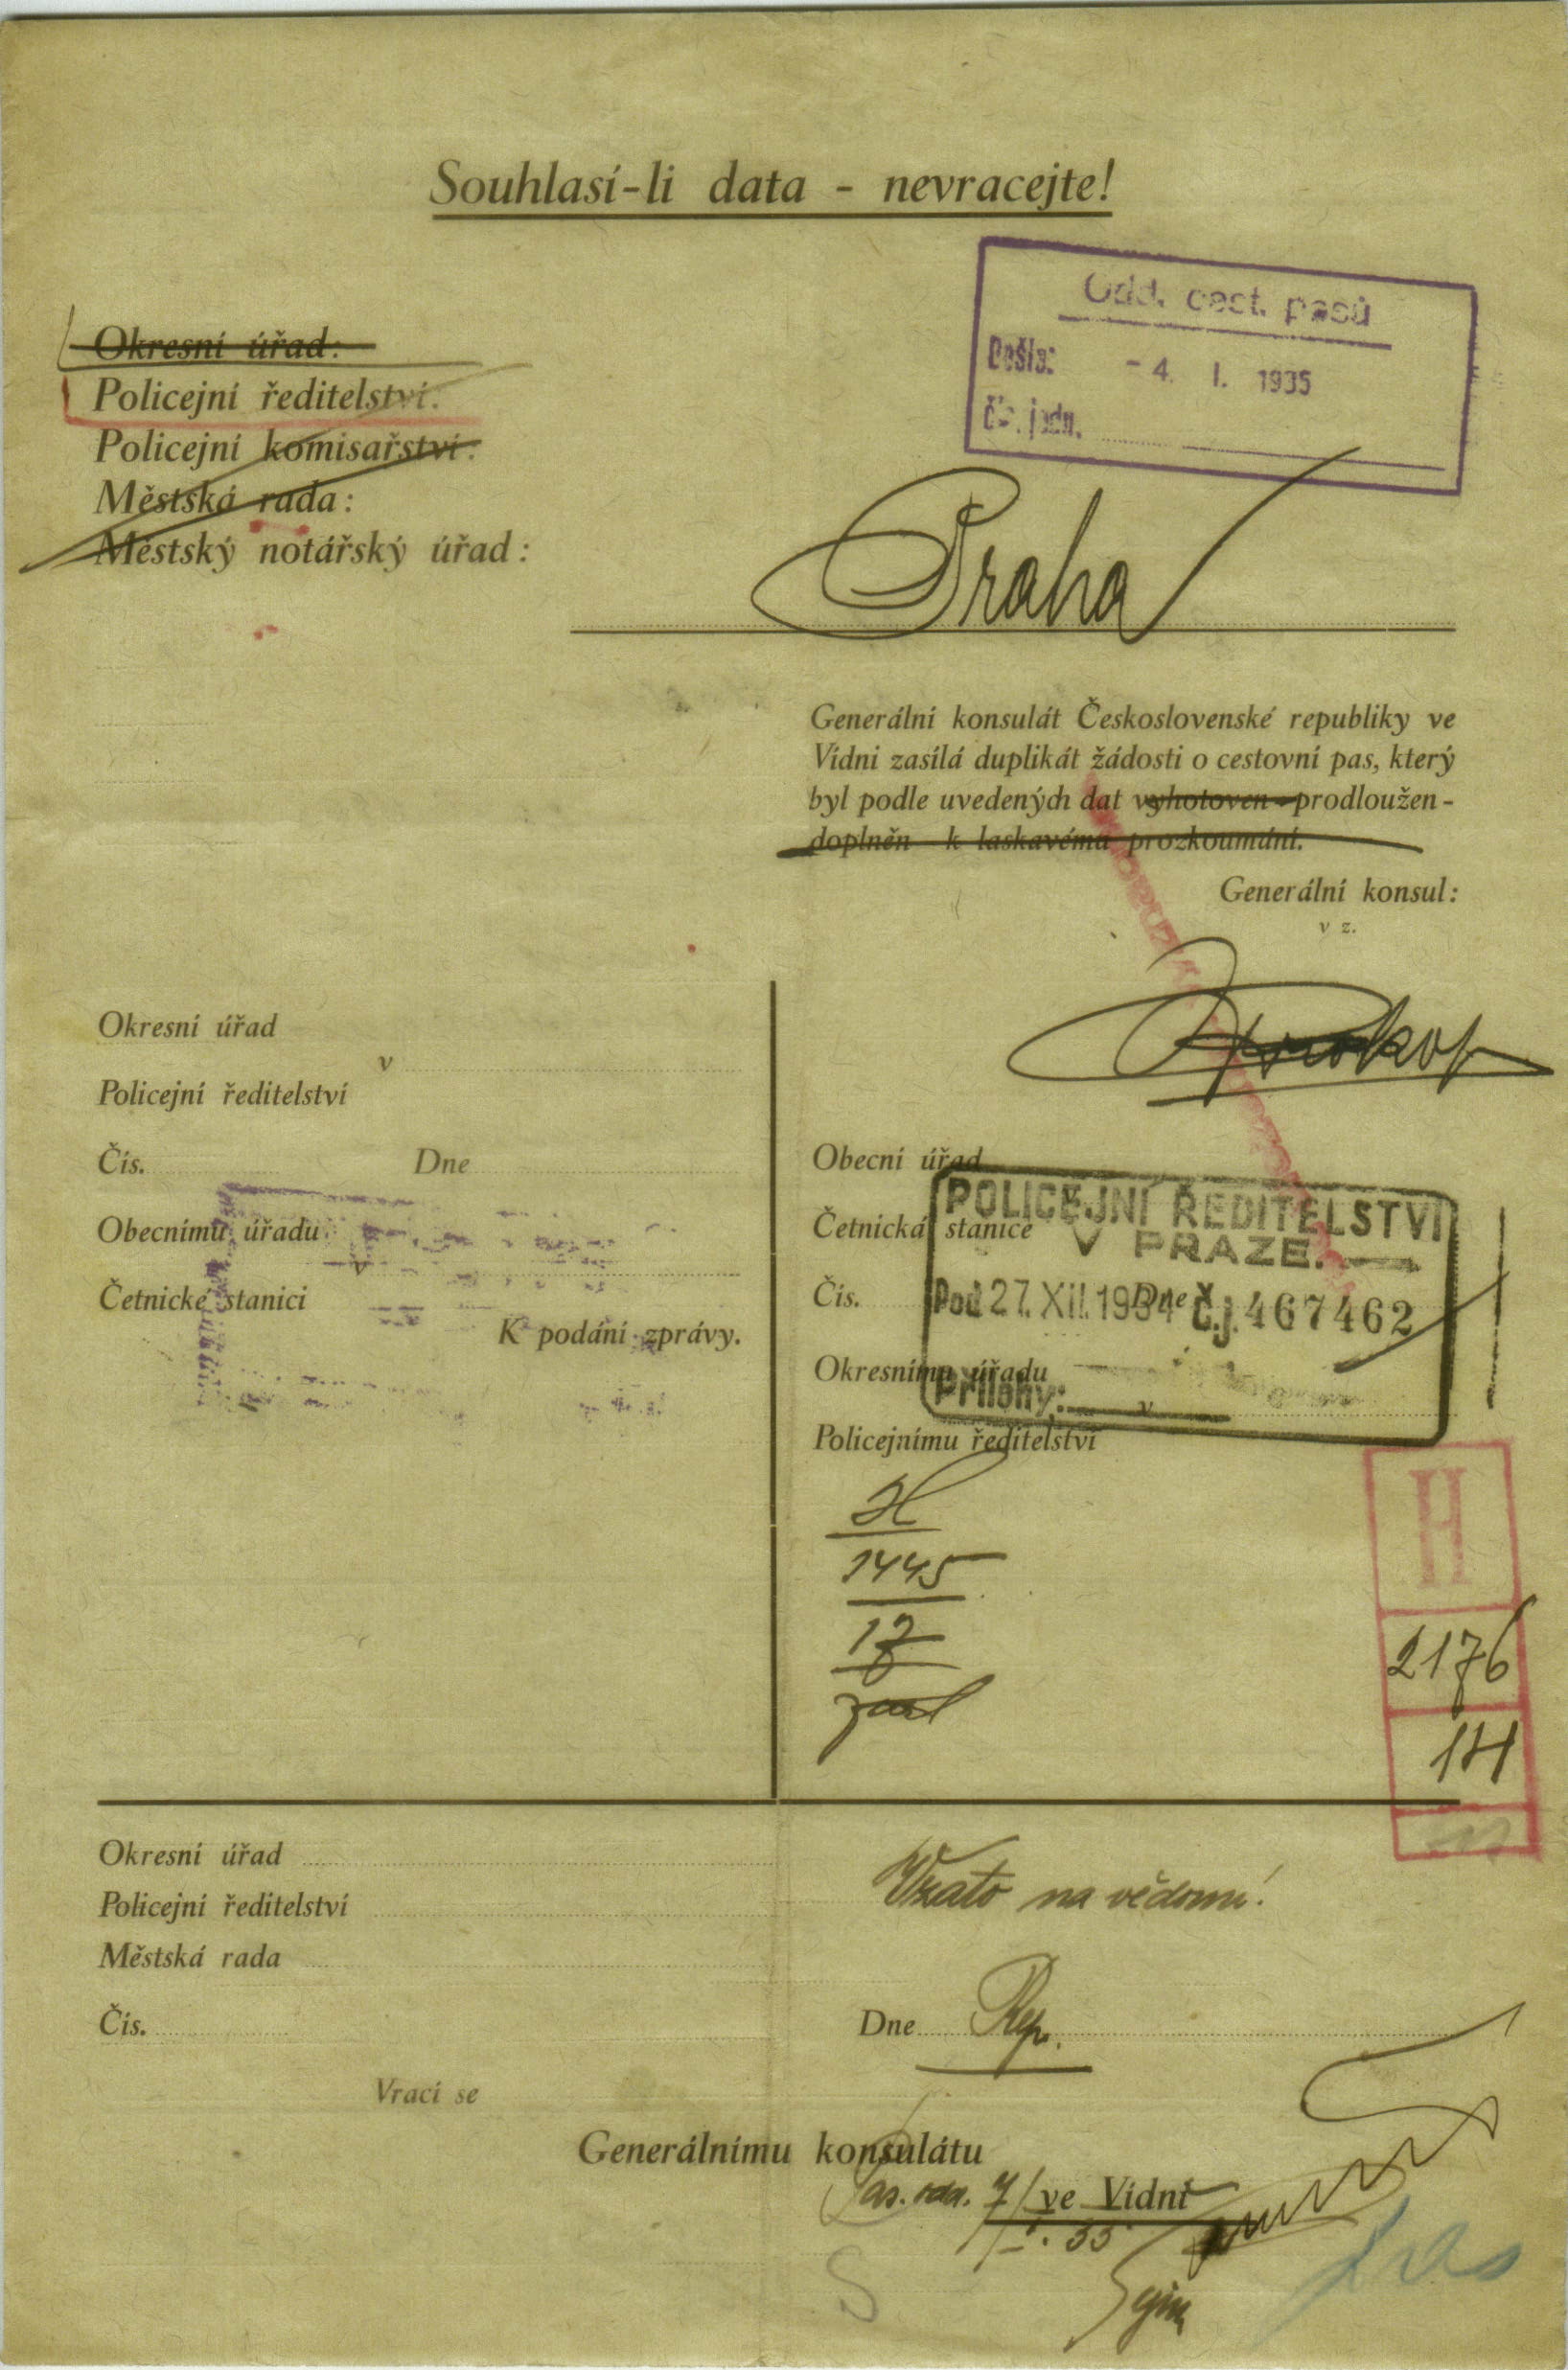 Souhlasí-li data - nevracejte!
Odd. cest. pasů
Došlo: - 4. I. 1935
Čís. jedn.
Okresní úřad:
Policejní ředitelství:
Policejní komisařství:
Městská rada:
Městský notářský úřad:
Praha
Generální konsulát Československé republiky ve
Vídni zasílá duplikát žádosti o cestovní pas, který
byl podle uvedených dat vyhotoven - prodloužen -
doplněn k laskavému prozkoumání.
Generální konsul:
v z.
Prokop
Okresní úřad
v
Policejní ředitelství
Čís. Dne
Obecnímu úřadu
v
Četnické stanici
K podání zprávy.
Obecní úřad
Četnická stanice
v
Čís. Dne
Okresnímu úřadu
v
Policejnímu ředitelství
POLICEJNÍ ŘEDITELSTVÍ
V PRAZE.
Pod 27. XII. 1934 Č.j. 467462
Přílohy:
H
1445
17
H
2176
14
Okresní úřad
Policejní ředitelství
Městská rada
Čís.
Vzato na vědomí!
Dne Rep.
Vrací se
Generálnímu konsulátu
ve Vídni
S